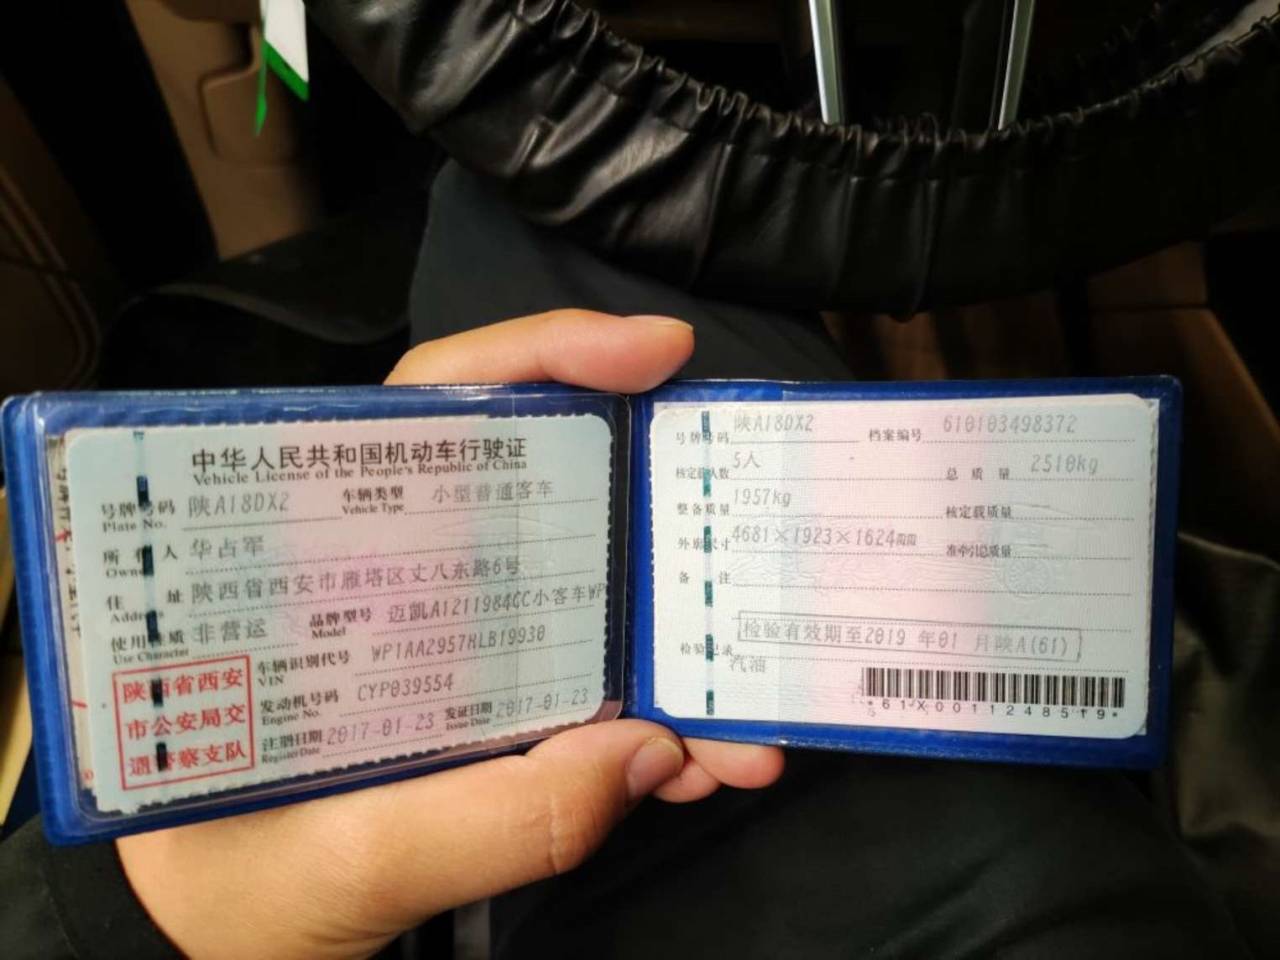 中华人民共和国机动车行驶证
Vehicle License of the People's Republic of China
号牌号码 陕A18DX2 车辆类型 小型普通客车
Plate No. Vehicle Type
所有人 华占军
Owner
住址 陕西省西安市雁塔区丈八东路6号
Address
使用性质 非营运 品牌型号 迈凯A1211984CC小客车WP
Use Character Model
陕西省西安
市公安局交
通警察支队
车辆识别代号 WP1AA2957HLB19930
VIN
发动机号码 CYP039554
Engine No.
注册日期 2017-01-23 发证日期 2017-01-23
Register Date Issue Date
号牌号码 陕A18DX2 档案编号 610103498372
核定载人数 5人 总质量 2510kg
整备质量 1957kg 核定载质量
外廓尺寸 4681×1923×1624mm 准牵引总质量
备注
检验有效期至2019年01月陕A(61)
检验记录
汽油
*61X0011248519*